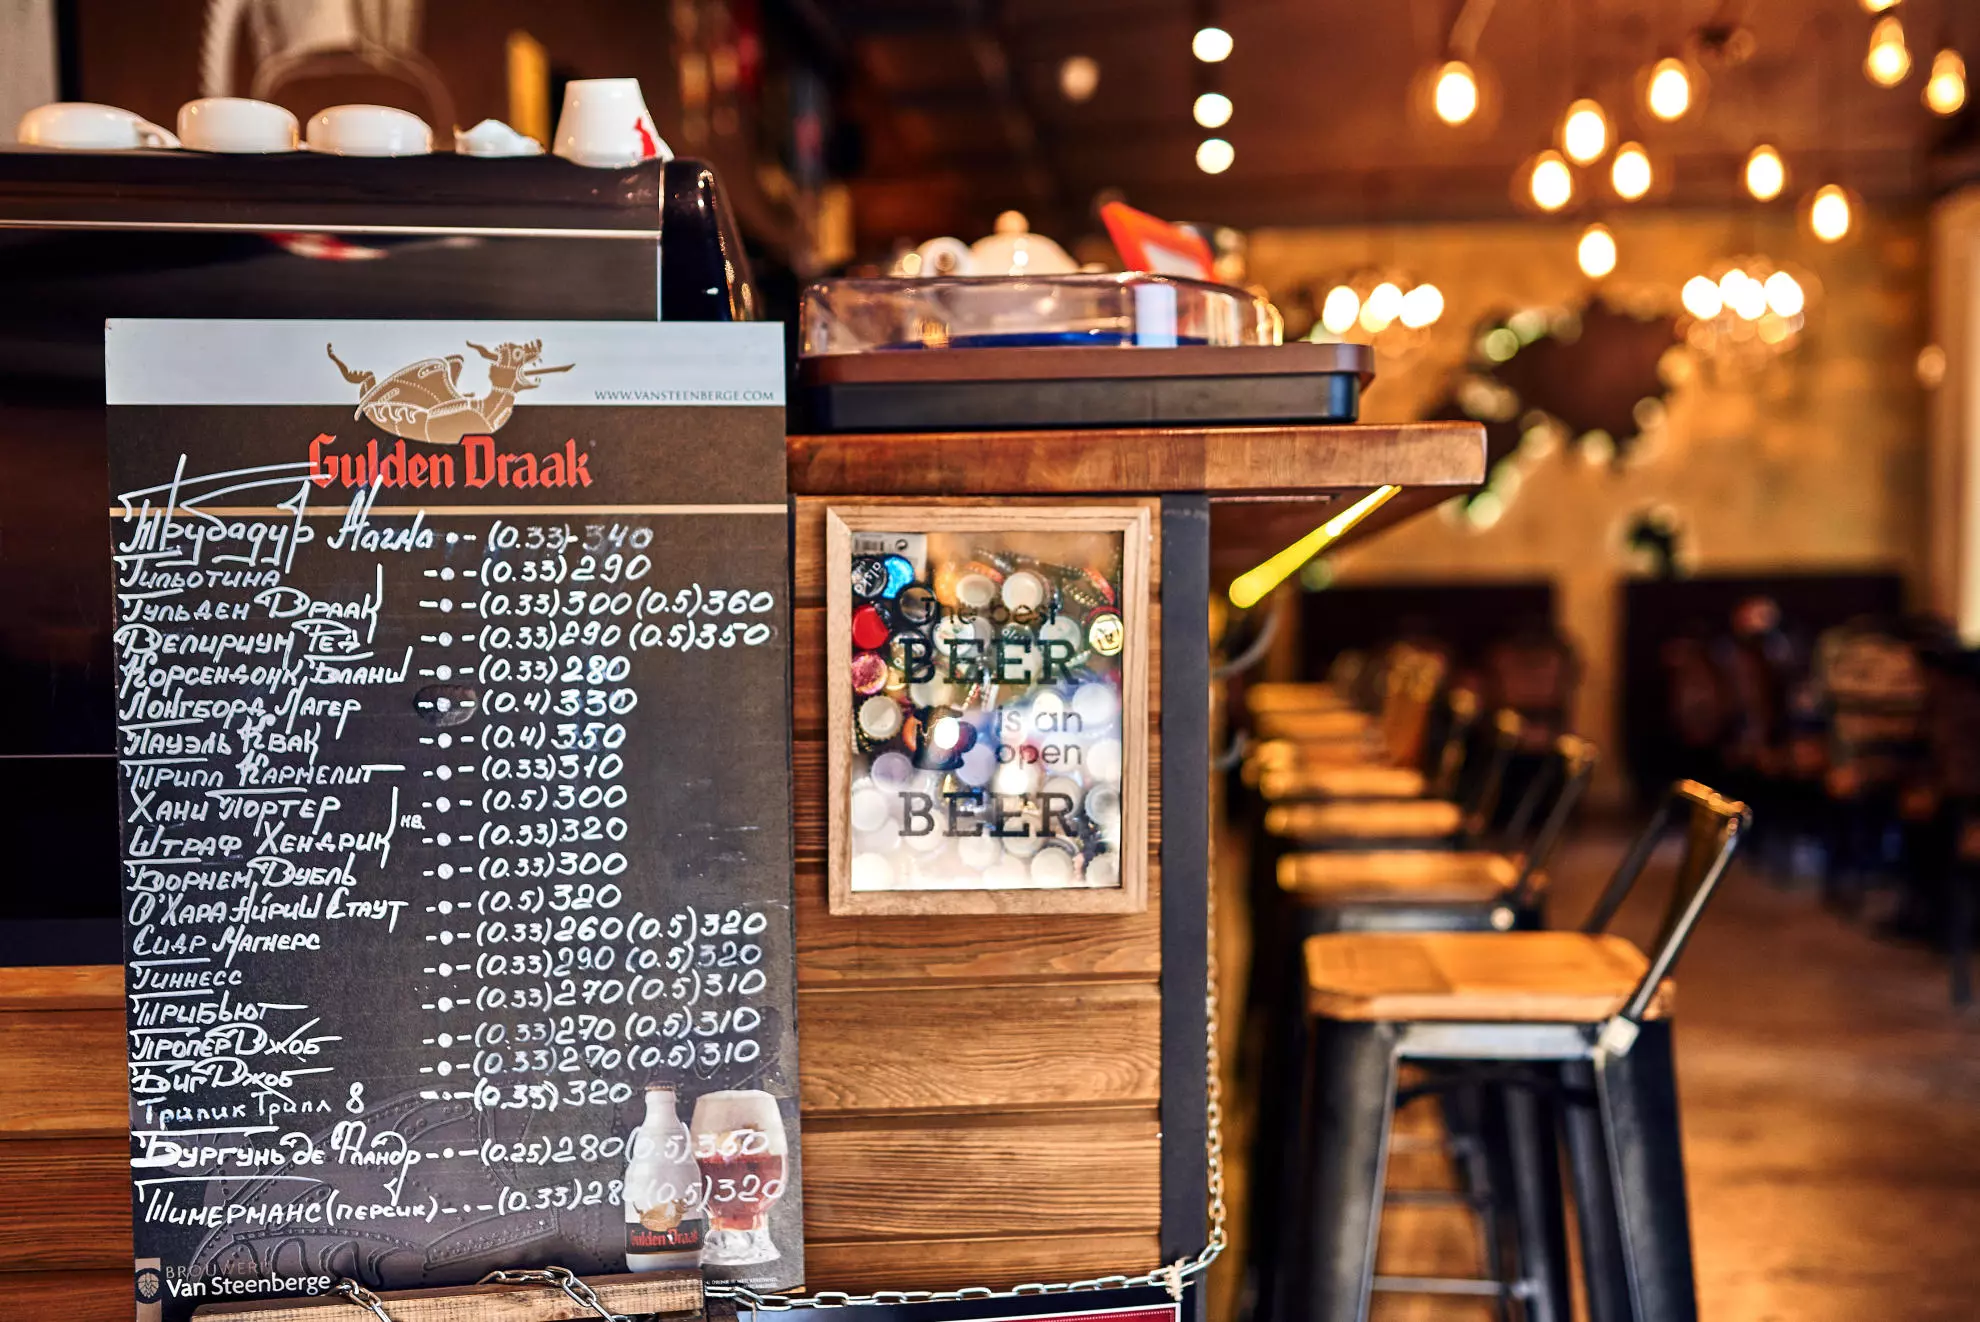 WWW.VANSTEENBERGE.COM
Gulden Draak
Трубадур Магма -•- (0.33)-340
Гильотина -•-(0.33)290
Гульден Драак -•-(0.33)300(0.5)360
Делириум Ред -•-(0.33)290 (0.5)350
Корсендонк Бланш -•-(0.33)280
Лонгборд Лагер -•-(0.4)330
Пауэль Квак -•-(0.4)350
Трипл Кармелит -•-(0.33)310
Хани Портер -•-(0.5)300
Штраф Хендрик кв. -•-(0.33)320
Борнем Дубль -•-(0.33)300
О'Хара Айриш Стаут -•-(0.5)320
Сидр Магнерс -•-(0.33)260(0.5)320
Гиннесс -•-(0.33)290(0.5)320
Трибьют -•-(0.33)270(0.5)310
Пропер Джоб -•-(0.33)270(0.5)310
Биг Джоб -•-(0.33)270(0.5)310
Трипик Трипл 8 -•-(0.33)320
Бургунь де Фландр-•-(0.25)280(0.5)360
Тимерманс(персик)-•-(0.33)28 (0.5)320
Gulden Draak
BROUWERIJ
Van Steenberge
The best
BEER
is an
open
BEER